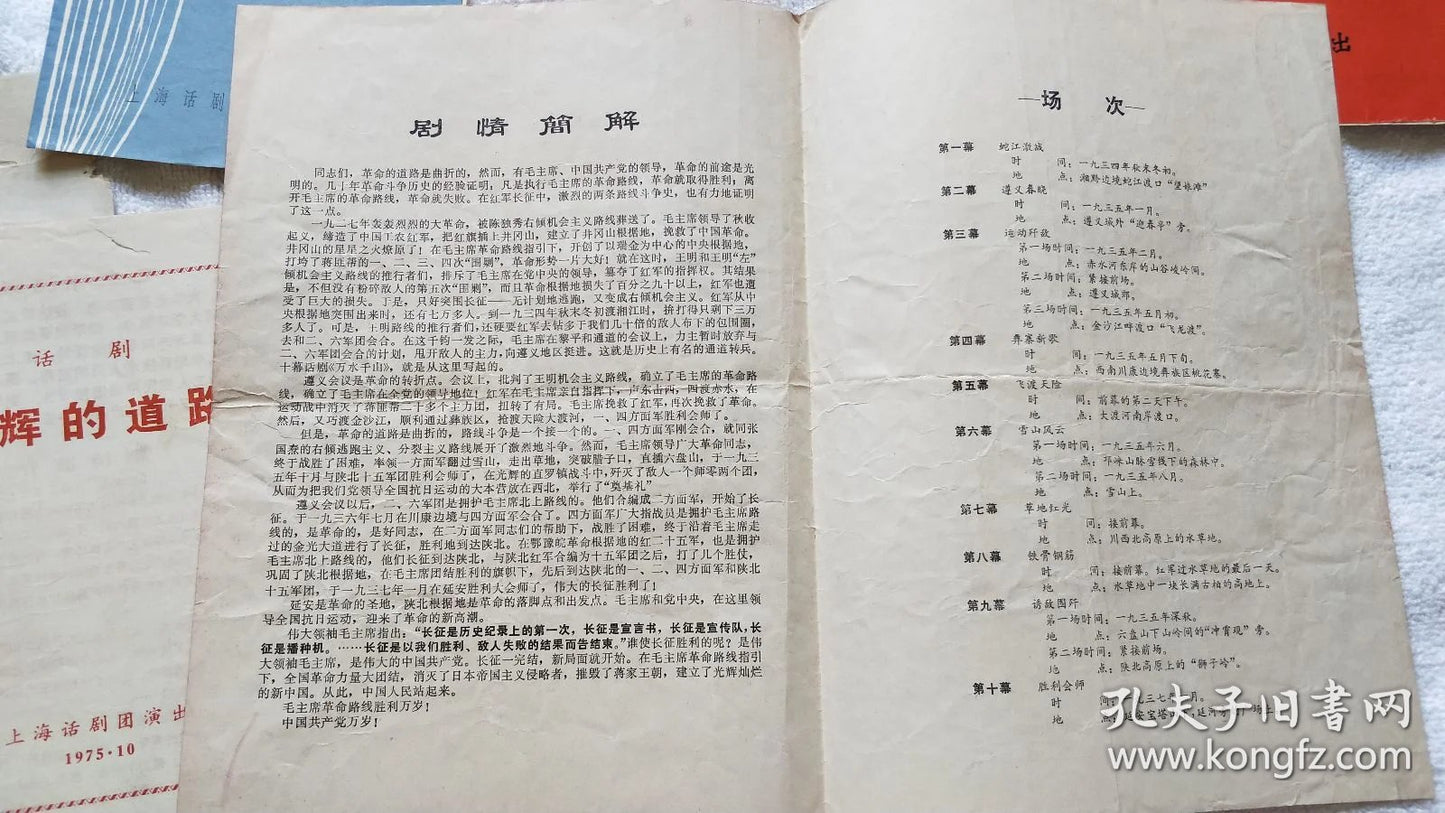 上海话剧
出
话 剧
辉的道路
上海话剧团演出
1975·10
剧情簡解
同志们，革命的道路是曲折的，然而，有毛主席、中国共产党的领导，革命的前途是光
明的。几十年革命斗争历史的经验证明：凡是执行毛主席的革命路线，革命就取得胜利；离
开毛主席的革命路线，革命就失败。在红军长征中，激烈的两条路线斗争史，也有力地证明
了这一点。
一九二七年轰轰烈烈的大革命，被陈独秀右倾机会主义路线葬送了。毛主席领导了秋收
起义，缔造了中国工农红军，把红旗插上井冈山，建立了井冈山根据地，挽救了中国革命。
井冈山的星星之火燎原了！在毛主席革命路线指引下，开创了以瑞金为中心的中央根据地，
打垮了蒋匪帮的一、二、三、四次“围剿”，革命形势一片大好！就在这时，王明和王明“左”
倾机会主义路线的推行者们，排斥了毛主席在党中央的领导，篡夺了红军的指挥权。其结果
是，不但没有粉碎敌人的第五次“围剿”，而且革命根据地损失了百分之九十以上，红军也遭
受了巨大的损失。于是，只好突围长征——无计划地逃跑，又变成右倾机会主义。红军从中
央根据地突围出来时，还有七万多人。到一九三四年秋末冬初渡湘江时，拚打得只剩下三万
多人了。可是，王明路线的推行者们，还硬要红军去钻多于我们几十倍的敌人布下的包围圈，
去和二、六军团会合。在这千钧一发之际，毛主席在黎平和通道的会议上，力主暂时放弃与
二、六军团会合的计划，甩开敌人的主力，向遵义地区挺进。这就是历史上有名的通道转兵。
十幕话剧《万水千山》，就是从这里写起的。
遵义会议是革命的转折点。会议上，批判了王明机会主义路线，确立了毛主席的革命路
线，确立了毛主席在全党的领导地位！红军在毛主席亲自指挥下，声东击西，四渡赤水，在
运动战中消灭了蒋匪帮二十多个主力团，扭转了有局。毛主席挽救了红军，再次挽救了革命。
然后，又巧渡金沙江，顺利通过彝族区，抢渡天险大渡河，一、四方面军胜利会师了。
但是，革命的道路是曲折的，路线斗争是一个接一个的。一、四方面军刚会合，就同张
国焘的右倾逃跑主义、分裂主义路线展开了激烈地斗争。然而，毛主席领导广大革命同志，
终于战胜了困难，率领一方面军翻过雪山，走出草地，突破腊子口，直插六盘山，于一九三
五年十月与陕北十五军团胜利会师了，在光辉的直罗镇战斗中，歼灭了敌人一个师零两个团，
从而为把我们党领导全国抗日运动的大本营放在西北，举行了“奠基礼”
遵义会议以后，二、六军团是拥护毛主席北上路线的。他们合编成二方面军，开始了长
征。于一九三六年七月在川康边境与四方面军会合了。四方面军广大指战员是拥护毛主席路
线的，是革命的，是好同志，在二方面军同志们的帮助下，战胜了困难，终于沿着毛主席走
过的金光大道进行了长征，胜利地到达陕北。在鄂豫皖革命根据地的红二十五军，也是拥护
毛主席北上路线的，他们长征到达陕北，与陕北红军合编为十五军团之后，打了几个胜仗，
巩固了陕北根据地，在毛主席团结胜利的旗帜下，先后到达陕北的一、二、四方面军和陕北
十五军团，于一九三七年一月在延安胜利大会师了，伟大的长征胜利了！
延安是革命的圣地，陕北根据地是革命的落脚点和出发点。毛主席和党中央，在这里领
导全国抗日运动，迎来了革命的新高潮。
伟大领袖毛主席指出：“长征是历史纪录上的第一次，长征是宣言书，长征是宣传队，长
征是播种机。……长征是以我们胜利、敌人失败的结果而告结束。”谁使长征胜利的呢？是伟
大领袖毛主席，是伟大的中国共产党。长征一完结，新局面就开始。在毛主席革命路线指引
下，全国革命力量大团结，消灭了日本帝国主义侵略者，摧毁了蒋家王朝，建立了光辉灿烂
的新中国。从此，中国人民站起来。
毛主席革命路线胜利万岁！
中国共产党万岁！
—场 次—
第一幕 蛇江激战
时 间：一九三四年秋末冬初。
地 点：湘黔边境蛇江渡口“望娘滩”
第二幕 遵义春晓
时 间：一九三五年一月。
地 点：遵义城外“迎春亭”旁。
第三幕 运动歼敌
第一场时间：一九三五年二月。
地 点：赤水河东岸的山谷峻岭间。
第二场时间：紧接前场。
地 点：遵义城郊。
第三场时间：一九三五年五月初。
地 点：金沙江畔渡口“飞龙渡”。
第四幕 彝寨新歌
时 间：一九三五年五月下旬。
地 点：西南川康边境彝族区桃花寨。
第五幕 飞渡天险
时 间：前幕的第二天下午。
地 点：大渡河南岸渡口。
第六幕 雪山风云
第一场时间：一九三五年六月。
地 点：邛崃山脉雪线下的森林中。
第二场时间：一九三五年八月。
地 点：雪山上。
第七幕 草地红光
时 间：接前幕。
地 点：川西北高原上的水草地。
第八幕 铁骨钢筋
时 间：接前幕，红军过水草地的最后一天。
地 点：水草地中一块长满古柏的高地上。
第九幕 诱敌围歼
第一场时间：一九三五年深秋。
地 点：六盘山下山岭间的“冲霄观”旁。
第二场时间：紧接前场。
地 点：陕北高原上的“狮子岭”。
第十幕 胜利会师
时 间：一九三七年一月。
地 点：延安宝塔山下，延河
孔夫子旧书网
www.kongfz.com